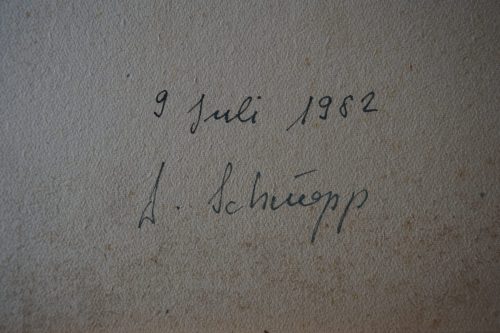 9 Juli 1982
D. Schüepp